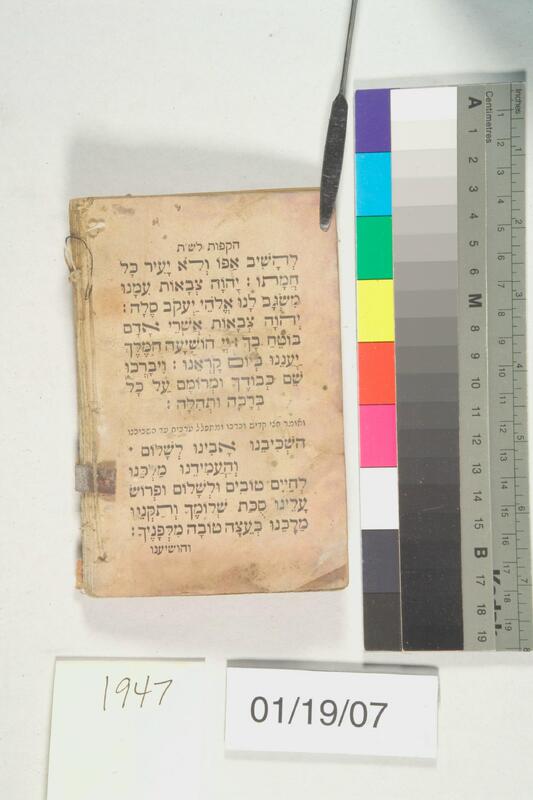 הקפות לש״ת
לְהָשִׁיב אַפּוֹ וְלֹא יָעִיר כָּל
חֲמָתוֹ: יְהֹוָה צְבָאוֹת עִמָּנוּ
מִשְׂגָּב לָנוּ אֱלֹהֵי יַעֲקֹב סֶלָה:
יְהֹוָה צְבָאוֹת אַשְׁרֵי אָדָם
בּוֹטֵחַ בָּךְ: יְיָ הוֹשִׁיעָה הַמֶּלֶךְ
יַעֲנֵנוּ בְיוֹם קָרְאֵנוּ: וִיבָרְכוּ
שֵׁם כְּבוֹדֶךָ וּמְרוֹמַם עַל כָּל
בְּרָכָה וּתְהִלָּה:
ואומר חצי קדיש וברכו ומתפלל ערבית עד השכיבנו
הַשְׁכִּיבֵנוּ אָבִינוּ לְשָׁלוֹם
וְהַעֲמִידֵנוּ מַלְכֵּנוּ
לְחַיִּים טוֹבִים וּלְשָׁלוֹם וּפְרוֹשׂ
עָלֵינוּ סֻכַּת שְׁלוֹמֶךָ וְתַקְּנֵנוּ
מַלְכֵּנוּ בְּעֵצָה טוֹבָה מִלְּפָנֶיךָ:
והושיענו
Inches
Centimetres
1 2 3 4 5 6 7 8
1 2 3 4 5 6 7 8 9 10 11 12 13 14 15 16 17 18 19
A 1 2 3 4 5 6 M 8 9 10 11 12 13 14 15 B 17 18 19
Kodak
1947
01/19/07